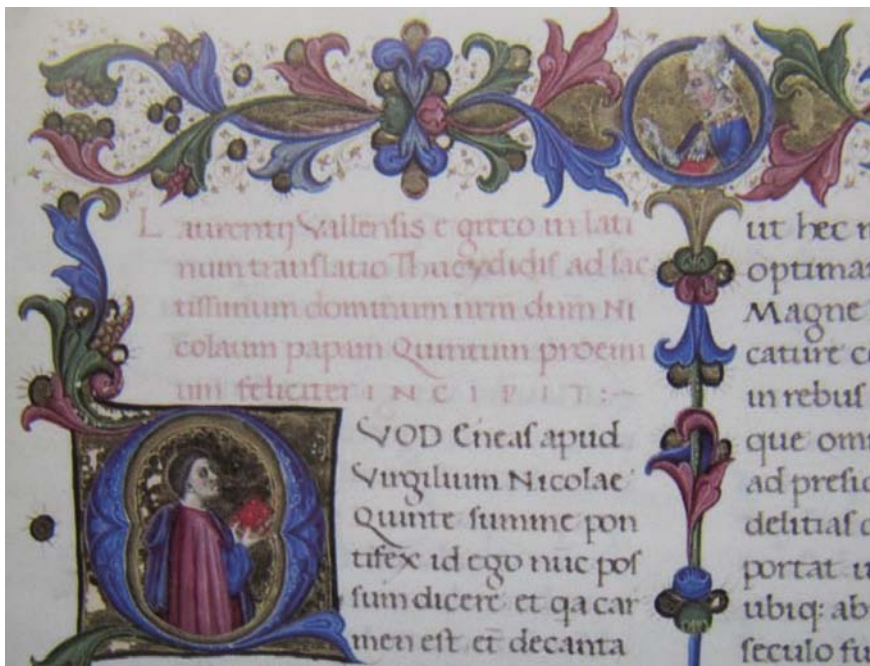 Laurentij Vallensis e greco in lati
num translatio Thucydidis ad sac
tissimum dominum nrm dum Ni
colaum papam Quintum proemi
um feliciter INCIPIT:~
QVOD Eneas apud
Virgilium Nicolae
Quinte summe pon
tifex id ego nūc pos
sum dicere et qa car
men est et̄ decanta
ut hec
optima
Magne
cature
in rebus
que
ad
delitias
portat
ubiq: ab
seculo